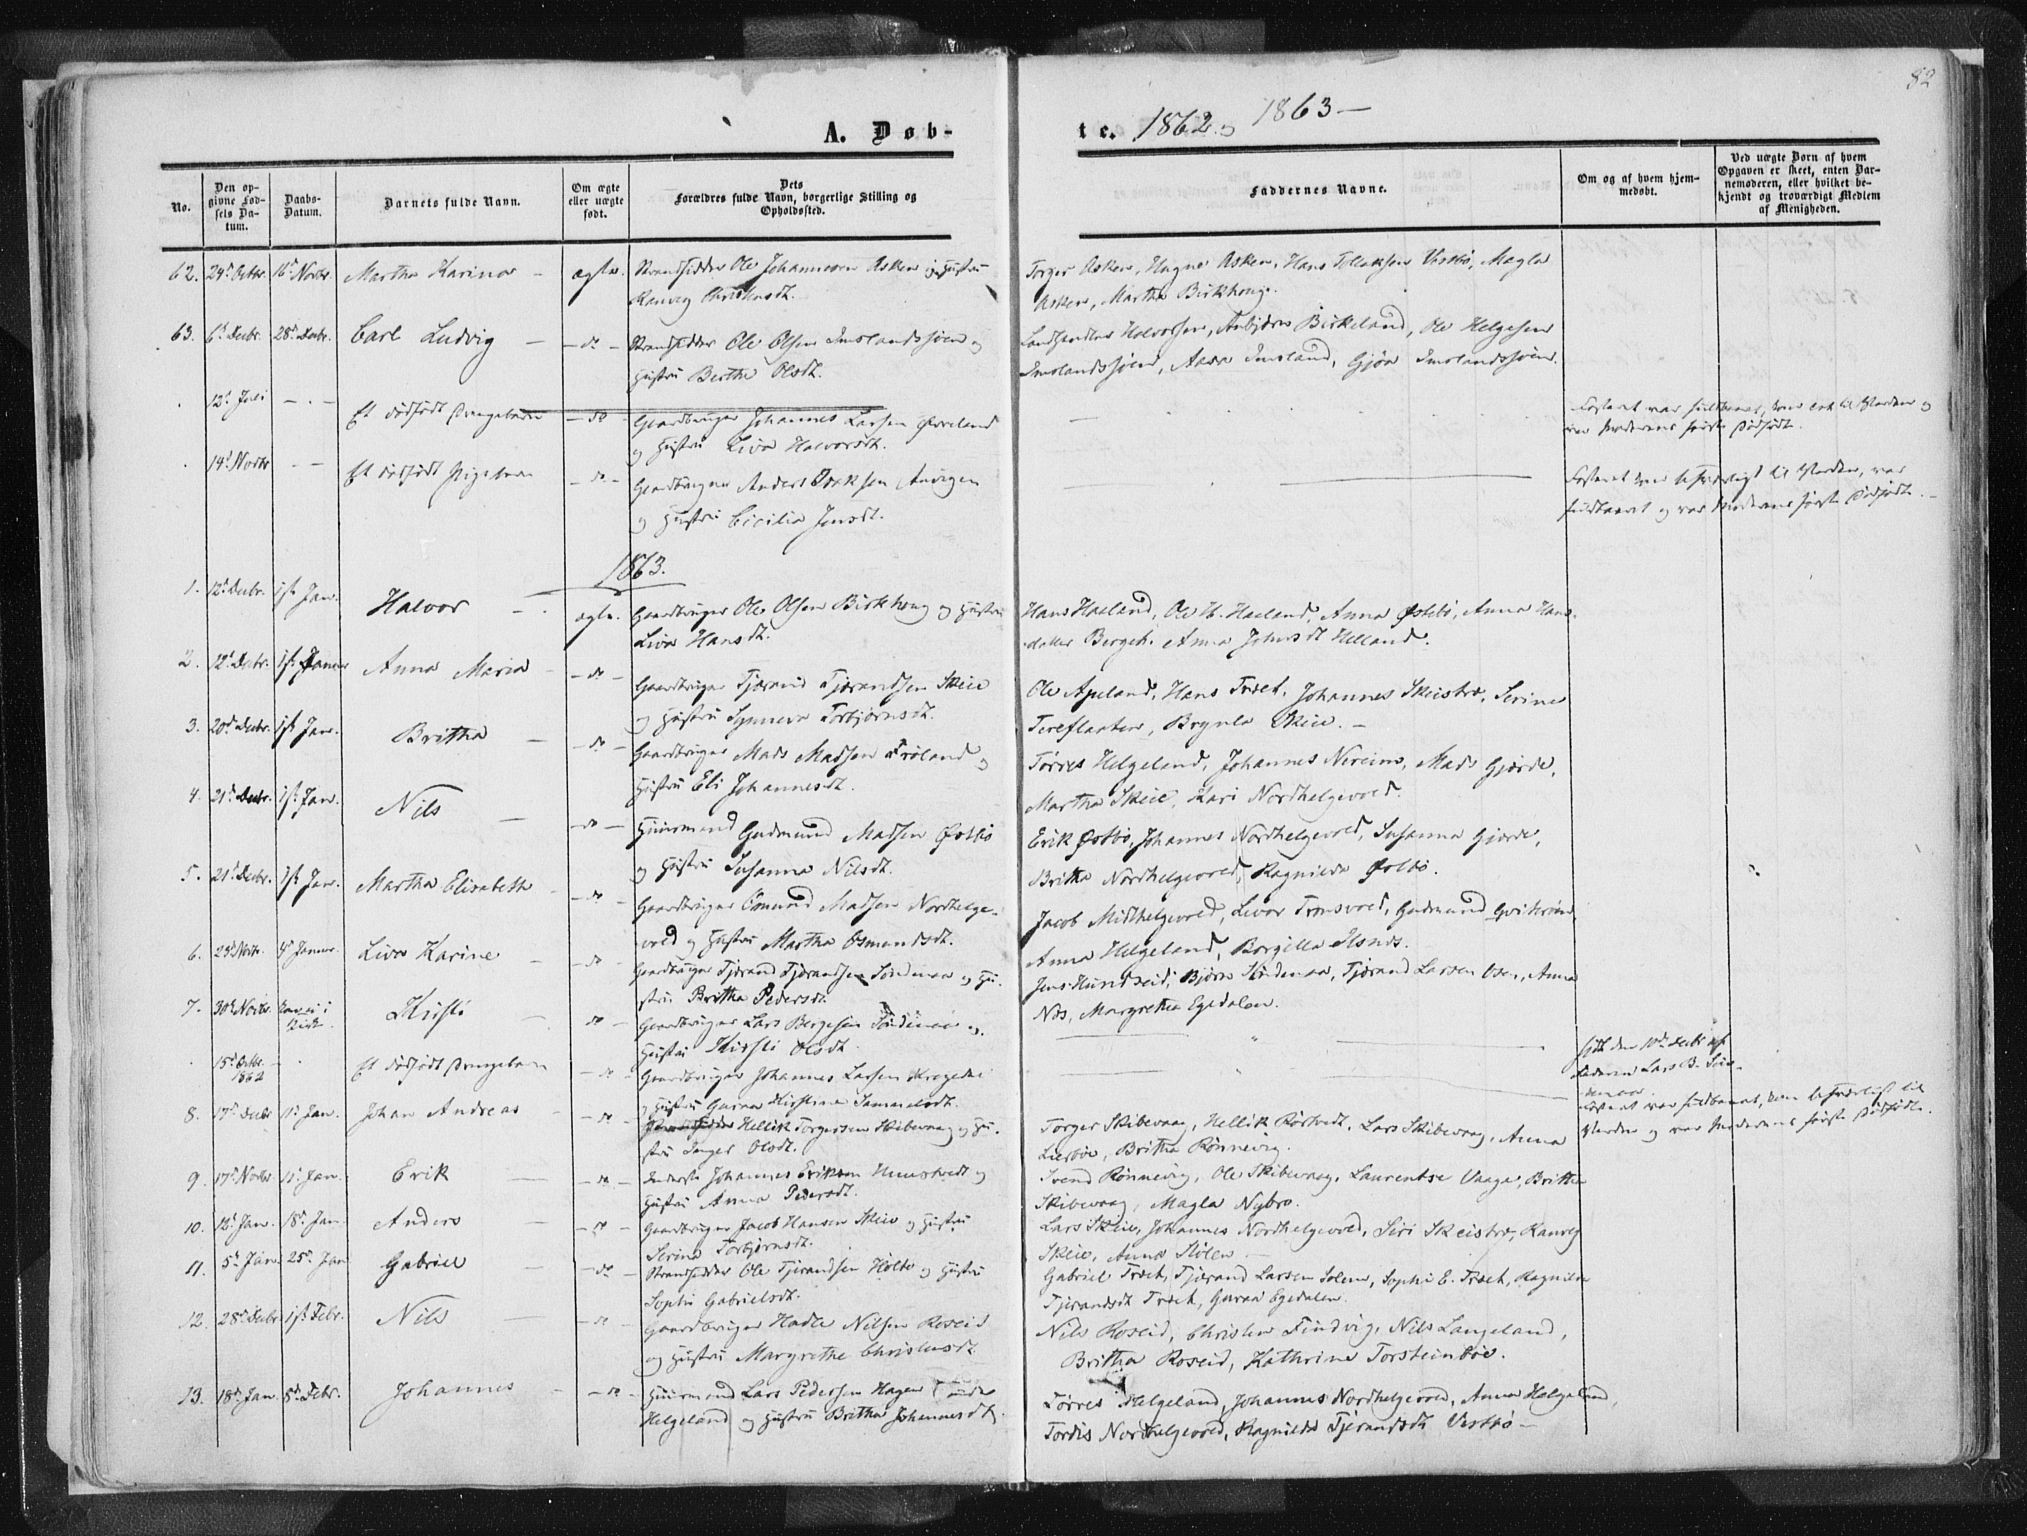 82
A. Døb-
te. 1862 og 1863 –
No.
Den op-
givne Fød-
sels Da-
tum.
Daabs-
Datum.
Barnets fulde Navn.
Om ægte
eller uægte
født.
Dets
Forældres fulde Navn, borgerlige Stilling og
Opholdssted.
Faddernes Navne.
Om og af hvem hjem-
medøbt.
Ved uægte Børn af hvem
Opgaven er skeet, enten Bar-
nemoderen, eller hvilket be-
kjendt og troværdigt Medlem
af Menigheden.
62. 24d Octbr. 16d Novbr. Martha Karine – ægte. Strandsidder Ole Johannesen Asken og Hustru
Ranveig
Torger Asken, Magne Asken, Hans Tollaksen Vestbø, Magla
Asken, Martha Birkhoug.
63. 6d Decbr. 28d Decbr. Carl Ludvig – do – Strandsidder Ole Olsen Imslandssjøen og
Hustru Berthe Olsdt.
Landhandler Halvorsen, Birkeland, Ole Helgesen
Imslandssjøen, Imsland, Gjøa Imslandssjøen.
12d Juli – Et dødfødt Drengebarn – do – Gaardbruger Johannes Larsen
og Hustru Liva Halvorsdt.
Fosteret var fuldbaaret, kom til Verden og
var Moderens første Dødfødte.
14d Novbr – Et dødfødt Pigebarn – do – Gaardbruger Anders
og Hustru Cicilia Jensdt.
Fosteret kom til Verden, var
fuldbaaret og var Moderens første Dødfødte. –
1863.
1. 12d Decbr. 1st Jan. Halvor – ægte. Gaardbruger Ole Olsen Birkhoug og Hustru
Liva Hansdt.
Hans Haeland, Ole H. Haeland, Anna Østebø, Anna Hans-
datter Berget. Anna Helland.
2. 12d Decbr. 1st Januar Anna Maria – do – Gaardbruger Tjerand Tjerandsen Skeie
og Hustru Synneva Torbjørnsdt.
Ole Apeland, Hans Træet, Johannes Skeistræ, Serine
Tereflaaten, Brynla Skeie. –
3. 20d Decbr. 1st Jan. Britha – do – Gaardbruger Mads Madsen Frøland og
Hustru Eli Johannesdt.
Tørres Helgeland, Johannes Nereim, Mads Gjerde,
Martha Skeie, Kari Nordhelgevold.
4. 21d Decbr. 1st Jan. Nils – do – Huusmand Gudmund Madsen Østbø
og Hustru Susanna Nilsdt.
Erik Østbø, Johannes Nordhelgevold, Susanna Gjerde,
Britha Nordhelgevold, Ragnilda Østbø.
5. 21d Decbr. 1st Jan. Martha Elisabeth – do – Gaardbruger Omund Madsen Nordhelge-
vold og Hustru Martha Osmundsdt.
Jacob Midthelgevold, Levor Tvusvold, Gudmund
Anna Helgeland, Borgilla
6. 23d Novbr. 4d Januar. Liva Karine – do – Gaardbruger Tjerand Tjerandsen Søndenaa og Hu-
stru Britha Pedersdt.
Jens Hundseid, Bjørn Søndenaa, Tjerand Larsen Osen, Anna
Næs, Margretha Egedalen.
7. 30d Novbr. Kirsti – do – Gaardbruger Lars Bergesen Søndenaa og
Hustru Kirsti Olsdt.
født den 10d Decbr af
Faderen Lars B. Søn-
denaa.
15d Octbr. 1862 – Et dødfødt Drengebarn – do – Gaardbruger Johannes Larsen
og Hustru Guroa Kirstine Samuelsdt.
Fosteret var fuldbaaret, kom til
Verden og var Moderens første Dødfødte.
8. 17d Decbr 11d Jan. Johan Andreas – do – Hellik Torgersen Skibevaag og Hu-
stru Inger Olsdt.
Torger Skibevaag, Hellik Rørtvedt, Lars Skibevaag, Anna
Britha Rønnevig.
9. 17d Novbr 11d Jan. Erik – do – Johannes Eriksen og
Hustru Anna Pedersdt.
Svend Rønnevig, Ole Skibevaag, Laurentse Vaage, Britha
Skibevaag, Magla Nybro.
10. 12d Jan. 18d Jan. Anders – do – Gaardbruger Jacob Hansen Skeie og Hustru
Serina Torbjørnsdt.
Lars Skeie, Johannes Nordhelgevold, Siri Skeistræ, Ranveig
Skeie, Anna Stølen –
11. 5d Jan. 25d Jan Gabriel – do – Strandsidder Ole Tjerandsen Holte og Hustru
Sophi Gabrielsdt.
Gabriel Træet, Tjerand Larsen Solem, Sophi E. Træet, Ragnilda
Tjerandsdt Træet, Guroa Egedalen.
12. 28d Decbr 1st Febr. Nils – do – Gaardbruger Hadle Nilsen Roseid
og Hustru Margrethe
Nils Roseid, Christen Findvig, Nils Langeland,
Britha Roseid, Kathrine Torsteinbøe.
13. 18d Jan. 8d Febr. Johannes – do – Huusmand Lars Pedersen Hagen under
Helgeland og Hustru Britha Johannesdt.
Tørres Helgeland, Johannes Nordhelgevold, Anna Helgeland,
Tordis Nordhelgevold, Ragnilda Tjerandsdt Vestbø –